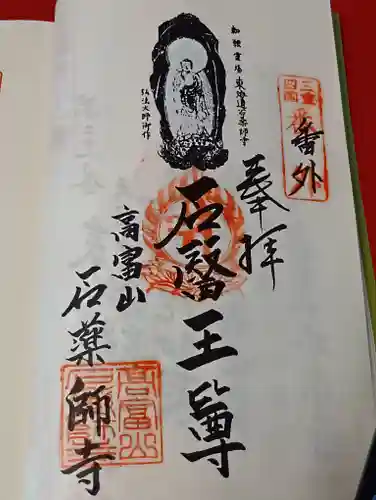 三重
四国
番外
奉拝
勅願霊場 東海道石薬師寺
弘法大師御作
石醫王尊
高富山
石薬師寺